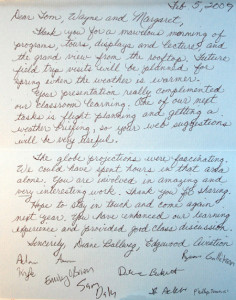 Feb 5, 2009
Dear Tom, Wayne and Margaret,
Thank you for a marvelous morning of
programs, tours, displays and lectures and
the grand view from the rooftop. Future
field trip visits will be for
spring when the weather is warmer.
Your presentation really complimented
our classroom learning. One of our next
tasks is flight planning and getting a
weather briefing, so your web suggestions
will be very useful.
The globe projections were fascinating.
We could have spent hours in that area
alone. You are involved in amazing and
very interesting work. Thank you for sharing.
Hope to stay in touch and come again
next year. You have enhanced our learning
experience and provided good class discussion.
Sincerely, Duane Edgewood Aviation
Adam
Kyle
Emily O'Brien
Sam